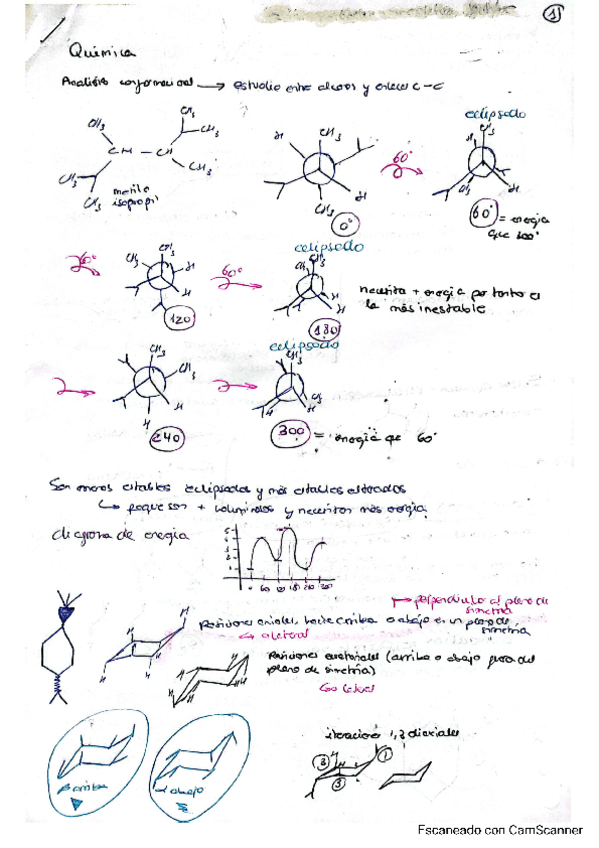 1
Química
Análisis conformacional → estudio entre alcanos y enlaces C-C
CH3
CH3
CH3
CH - CH
CH3
CH3
CH3
metilo
isopropil
H
CH3
H
CH3
0°
60°
eclipsado
CH3
H
CH3
H
60° = energía
que 300°
60°
CH3
CH3
H
H
120
60°
eclipsado
CH3
CH3
H
H
180
necesita + energía por tanto es
la más inestable
CH3
CH3
H
H
240
eclipsado
CH3
H
CH3
H
300 = energía que 60°
Son menos estables eclipsadas y más estables alternadas
porque son + voluminosos y necesitan más energía
diagrama de energía
60
120
180
240
300
perpendicular al plano de
simetría
Posiciones axiales, hacia arriba o abajo en un plano de
simetría
Posiciones ecuatoriales (arriba o abajo fuera del
plano de simetría)
H
H
H
H
arriba
abajo
1,3 diaxiales
H
3
1
3
Escaneado con CamScanner